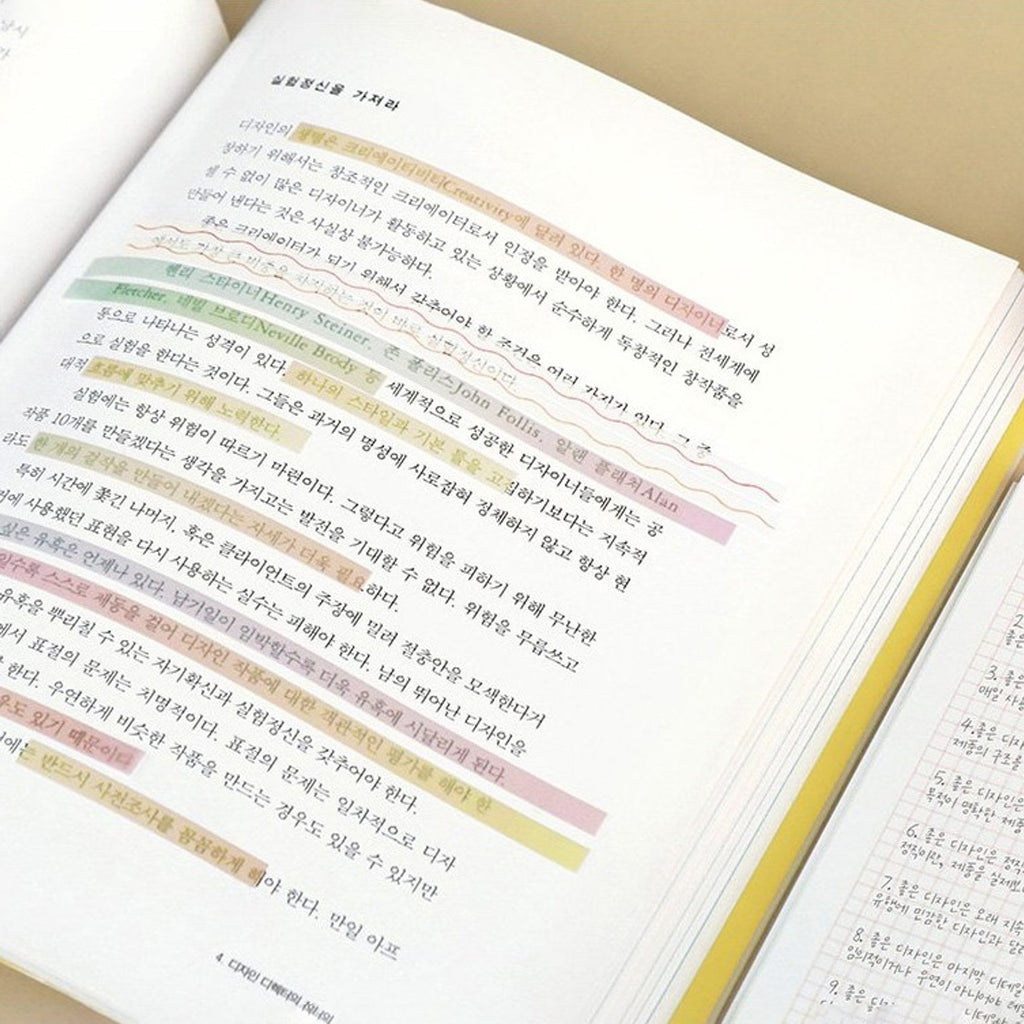 실험정신을 가져라
디자인의 생명은 크리에이티비티Creativity에 달려 있다. 한 명의 디자이너로서 성
장하기 위해서는 창조적인 크리에이터로서 인정을 받아야 한다. 그러나 전세계에
셀 수 없이 많은 디자이너가 활동하고 있는 상황에서 순수하게 독창적인 창작품을
만들어 낸다는 것은 사실상 불가능하다.
좋은 크리에이터가 되기 위해서 갖추어야 할 조건은 여러 가지가 있다. 그 중
에서도 가장 큰 비중을 차지하는 것이 바로 실험정신이다.
헨리 스타이너Henry Steiner, 존 폴리스John Follis, 알랜 플래처Alan
Fletcher, 네빌 브로디Neville Brody 등 세계적으로 성공한 디자이너들에게는 공
통으로 나타나는 성격이 있다. 하나의 스타일과 기본 틀을 고집하기보다는 지속적
으로 실험을 한다는 것이다. 그들은 과거의 명성에 사로잡혀 정체하지 않고 항상 현
대적 흐름에 맞추기 위해 노력한다.
실험에는 항상 위험이 따르기 마련이다. 그렇다고 위험을 피하기 위해 무난한
작품 10개를 만들겠다는 생각을 가지고는 발전을 기대할 수 없다. 위험을 무릅쓰고
라도 한 개의 걸작을 만들어 내겠다는 자세가 더욱 필요하다.
특히 시간에 쫓긴 나머지, 혹은 클라이언트의 주장에 밀려 절충안을 모색한다거
에 사용했던 표현을 다시 사용하는 실수는 피해야 한다. 남의 뛰어난 디자인을
싶은 유혹은 언제나 있다. 납기일이 임박할수록 더욱 유혹에 시달리게 된다.
일수록 스스로 제동을 걸어 디자인 작품에 대한 객관적인 평가를 해야 한
유혹을 뿌리칠 수 있는 자기확신과 실험정신을 갖추어야 한다.
에서 표절의 문제는 치명적이다. 표절의 문제는 일차적으로 디자
한다. 우연하게 비슷한 작품을 만드는 경우도 있을 수 있지만
우도 있기 때문이다
에는 반드시 사전조사를 꼼꼼하게 해야 한다. 만일 아프
4. 디자인 디렉터의
2.
좋은
3. 좋은
매일 사
4. 좋은 디자
제품의 구조를
5. 좋은 디자인은
목적이 명확한 제품
6. 좋은 디자인은 정직
정직이란, 제품을 실제보
7. 좋은 디자인은 오래 지속
유행에 민감한 디자인과 달리
8. 좋은 디자인은 마지막 디테일
임의적이거나 우연이 아니어야
9. 좋은